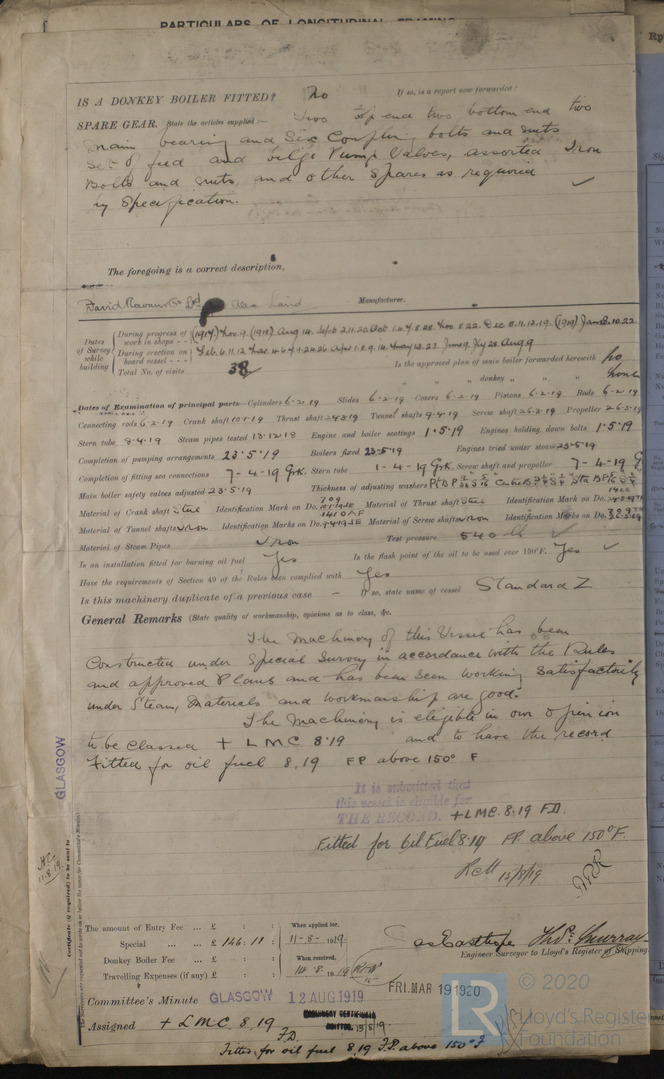 PARTICULARS OF LONGITUDINAL FRAMING
IS A DONKEY BOILER FITTED? No If so, is a report now forwarded?
SPARE GEAR. State the articles supplied:— Two top end two bottom end two
main bearing and Six Coupling bolts and nuts
set of feed and bilge Pump Valves, assorted Iron
Bolts and nuts, and other spares as required
in Specification.
The foregoing is a correct description,
David Rowan & Co Ld Alex Laird Manufacturer.
Dates of Survey while building
During progress of work in shops - - (1917) Nov. 9. (1918) Aug 14. Sept 2. 11. 20 Oct 1. 4. 8. 28. Nov 8. 22. Dec 8. 11. 12. 19. (1919) Jan 8. 10. 22
During erection on board vessel - - - Feb. 6. 11. 12 Mar. 4. 6. 24. 26 Apr 1. 8. 9. 14. May 13. 23. June 9. July 28. Aug 9
Total No. of visits 38
Is the approved plan of main boiler forwarded herewith No
" " " donkey " " "
Dates of Examination of principal parts—Cylinders 6-2-19 Slides 6-2-19 Covers 6-2-19 Pistons 6-2-19 Rods 6-2-19
Connecting rods 6-2-19 Crank shaft 10-1-19 Thrust shaft Tunnel shafts 9-4-19 Screw shaft 26-2-19 Propeller 26-3-19
Stern tube 9-4-19 Steam pipes tested Engine and boiler seatings 1-5-19 Engines holding down bolts 1-5-19
Completion of pumping arrangements 23-5-19 Boilers fixed 23-5-19 Engines tried under steam 23-5-19
Completion of fitting sea connections 7-4-19 Grk. Stern tube 1-4-19 Grk. Screw shaft and propeller 7-4-19
Main boiler safety valves adjusted 23-5-19 Thickness of adjusting washers
Material of Crank shaft Steel Identification Mark on Do. Material of Thrust shaft Steel Identification Mark on Do.
Material of Tunnel shafts Iron Identification Marks on Do. Material of Screw shafts Iron Identification Marks on Do.
Material of Steam Pipes Iron Test pressure 540 lb
Is an installation fitted for burning oil fuel Yes Is the flash point of the oil to be used over 150°F. Yes
Have the requirements of Section 49 of the Rules been complied with Yes
Is this machinery duplicate of a previous case — If so, state name of vessel Standard Z
General Remarks (State quality of workmanship, opinions as to class, &c.
The Machinery of this Vessel has been
Constructed under Special Survey in accordance with the Rules
and approved Plans and has been seen working satisfactorily
under Steam, Materials and workmanship are good.
The Machinery is eligible in our opinion
to be classed + LMC 8.19 and to have the record
Fitted for oil fuel 8.19 FP above 150° F
GLASGOW
Certificate (if required) to be sent to
It is submitted that
this vessel is eligible for
THE RECORD. + LMC. 8.19 FD.
Fitted for Oil Fuel 8.19 FP. above 150°F.
15/8/19
The amount of Entry Fee ... £ : :
Special ... ... £ 146.11 :
Donkey Boiler Fee ... £ : :
Travelling Expenses (if any) £ : :
When applied for, 11-8-1919
When received, 14.8.1919
Jas Easthope Thos. Murray
Engineer Surveyor to Lloyd's Register of Shipping.
Committee's Minute GLASGOW 12 AUG 1919 FRI. MAR 19 1920
Assigned + LMC. 8.19 F.D.
MACHINERY CERTIFICATE
WRITTEN 15/8/19
Fitted for oil fuel 8.19 F.P. above 150°F
LR © 2020
Lloyd's Register
Foundation